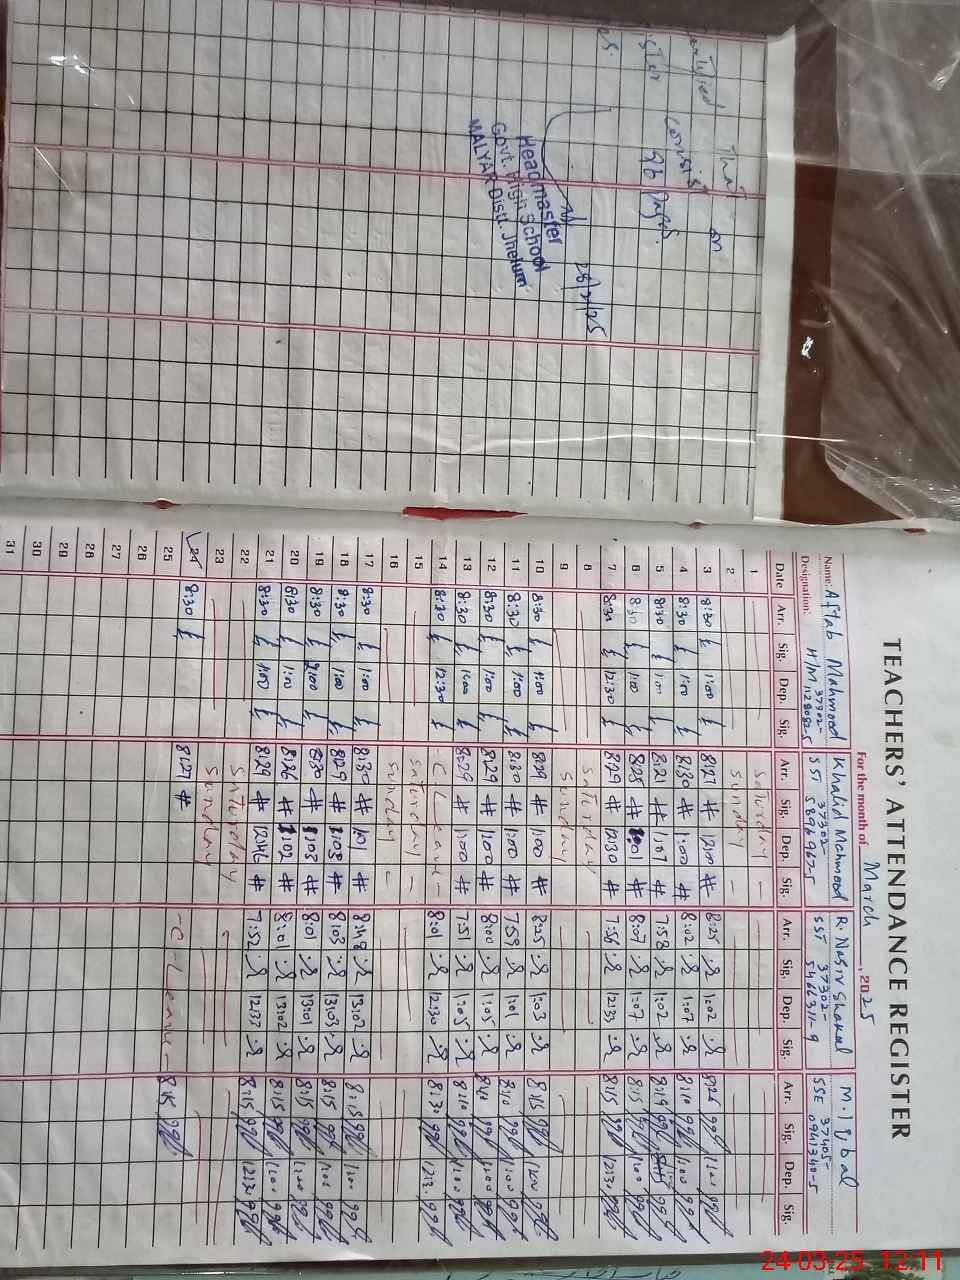 that on
consist
96 Pages.
28/2/25
Headmaster
Govt. High School
MALYAR Distt. Jhelum
TEACHERS' ATTENDANCE REGISTER
For the month of March, 2025
Name: Aftab Mahmood Khalid Mahmood R. Nasir Shakal M. Iqbal
Designation: H/M SST 37302- SST 37302- SSE 37405-
5896967-5 5466311-9 0941340-5
Date Arr. Sig. Dep. Sig. Arr. Sig. Dep. Sig. Arr. Sig. Dep. Sig. Arr. Sig. Dep. Sig.
1 Saturday
2 Sunday
3 8:30 1:00 8:27 1:00 8:25 1:02 1:00
4 8:30 1:00 8:30 1:00 8:02 1:07 8:10 1:00
5 8:30 1:00 8:21 1:07 7:58 1:02 8:19
6 8:30 1:00 8:28 1:01 8:07 1:07 8:15 1:00
7 8:30 12:30 8:29 12:30 7:56 12:33 8:15 12:30
8 Saturday
9 Sunday
10 8:30 1:00 8:29 1:00 8:25 1:03 8:15 1:00
11 8:30 1:00 8:30 1:00 7:59 1:01 8:10 1:00
12 8:30 1:00 8:29 1:00 8:00 1:05 1:00
13 8:30 1:00 8:29 1:00 7:51 1:05 8:10 1:00
14 8:30 12:30 - C Leave - 8:01 12:30 8:30
15 Saturday
16 Sunday
17 8:30 1:00 8:30 1:01 8:48 13:02 8:15 1:00
18 8:30 1:00 8:29 1:03 8:03 13:03 8:15 1:00
19 8:30 1:00 8:30 1:03 8:01 13:01 8:15 1:00
20 8:30 1:00 8:26 1:02 8:01 13:02 8:15 1:00
21 8:30 1:00 8:29 12:46 7:52 12:33 8:15 12:30
22 Saturday
23 Sunday
24 8:30 8:27 - C - Leave - 8:15
25
26
27
28
29
30
31
24-03-25 12:11